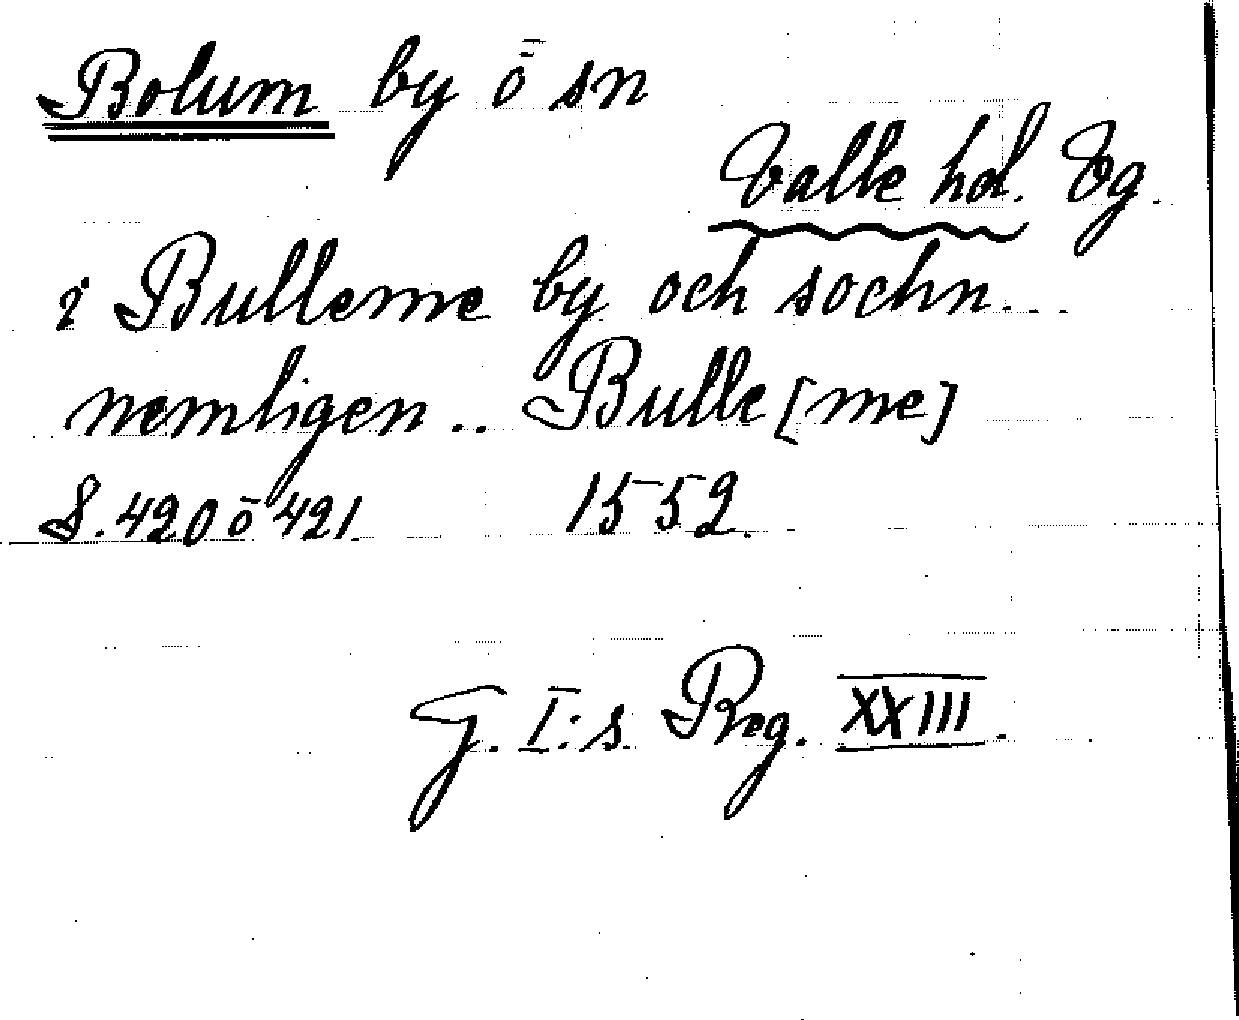 Bolum by ō sn
Valle hd. Vg.
i Bulleme by och sochn...
nemligen .. Bulle [me]
S. 420 ō 421 1552.
G. I:s Reg. XXIII.